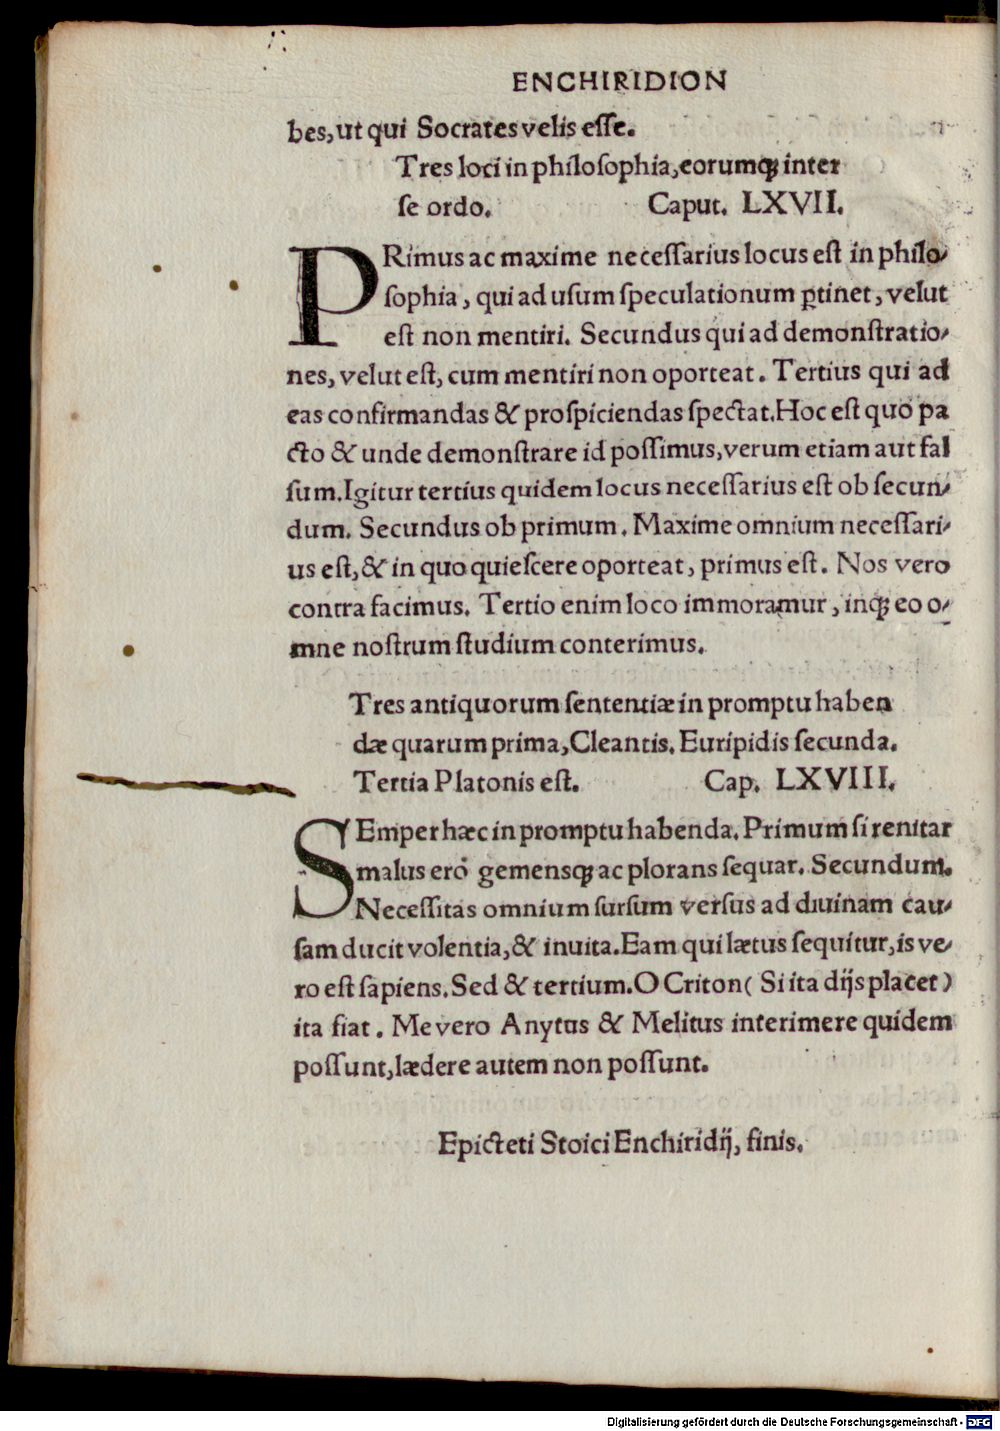 ENCHIRIDION
bes,ut qui Socrates velis eſſe.
Tres loci in philoſophia,eorumqꝫ inter
ſe ordo. Caput. LXVII.
PRimus ac maxime neceſſarius locus eſt in philo⸗
ſophia, qui ad uſum ſpeculationum ꝑtinet, velut
eſt non mentiri. Secundus qui ad demonſtratio⸗
nes, velut eſt, cum mentiri non oporteat. Tertius qui ad
eas confirmandas & proſpiciendas ſpectat.Hoc eſt quo pa
cto & unde demonſtrare id poſſimus,verum etiam aut fal
ſum.Igitur tertius quidem locus neceſſarius eſt ob ſecun⸗
dum. Secundus ob primum. Maxime omnium neceſſari⸗
us eſt,& in quo quieſcere oporteat, primus eſt. Nos vero
contra facimus. Tertio enim loco immoramur, inqꝫ eo o⸗
mne noſtrum ſtudium conterimus.
Tres antiquorum ſententiæ in promptu haben
dæ quarum prima,Cleantis. Euripidis ſecunda.
Tertia Platonis eſt. Cap. LXVIII.
SEmper hæc in promptu habenda.Primum ſi renitar
malus ero gemensqꝫ ac plorans ſequar. Secundum.
Neceſſitas omnium ſurſum verſus ad divinam cau⸗
ſam ducit volentia,& invita.Eam qui lætus ſequitur,is ve⸗
ro eſt ſapiens.Sed & tertium.O Criton( Si ita dijs placet)
ita fiat. Me vero Anytus & Melitus interimere quidem
poſſunt,lædere autem non poſſunt.
Epicteti Stoici Enchiridij, finis.
Digitalisierung gefördert durch die Deutsche Forschungsgemeinschaft - DFG